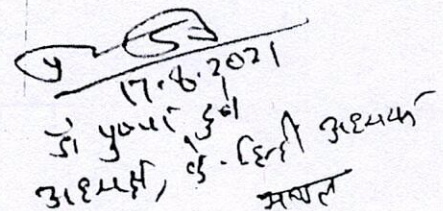 17.8.2021
डॉ पुष्पा दुबे
अध्यक्ष, के. हिन्दी अध्ययन
मण्डल